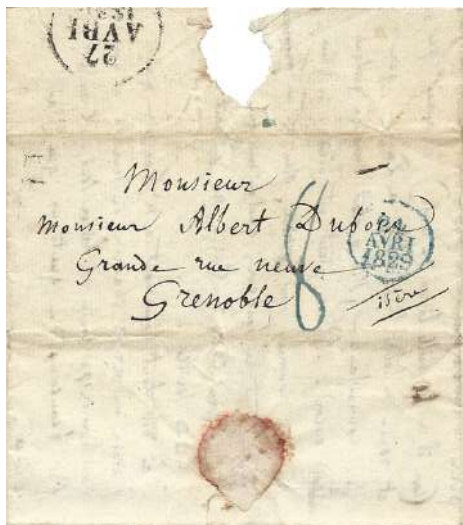 27
AVRI
Monsieur
Monsieur Albert Dubois
Grande rue neuve
Grenoble
isère
8
24
AVRI
1829